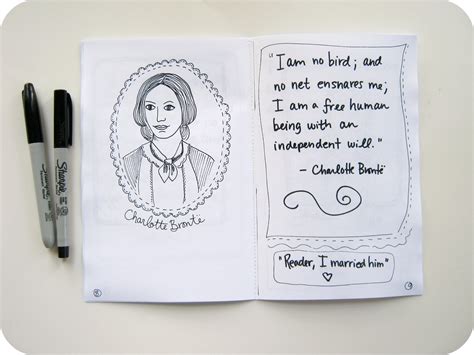 Sharpie
Sharpie
Charlotte Brontë
"I am no bird; and
no net ensnares me;
I am a free human
being with an
independent will."
- Charlotte Brontë
"Reader, I married him"